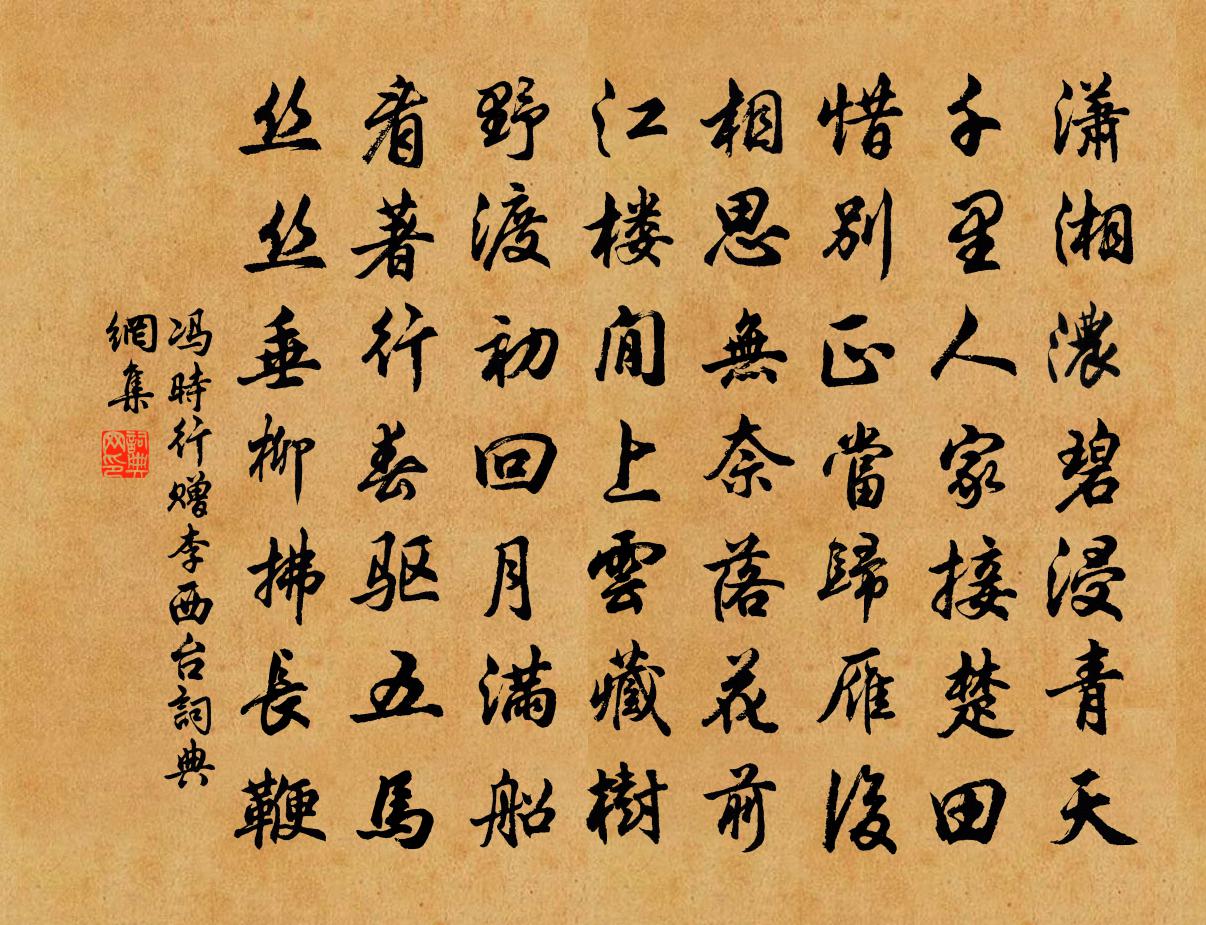 瀟湘濃碧浸青天
千里人家接楚田
惜别正當歸雁後
相思無奈落花前
江楼閒上雲藏樹
野渡初回月满船
看著行春驱五馬
丝丝垂柳拂長鞭
冯時行赠李西台詞典
網集
詞典
网印